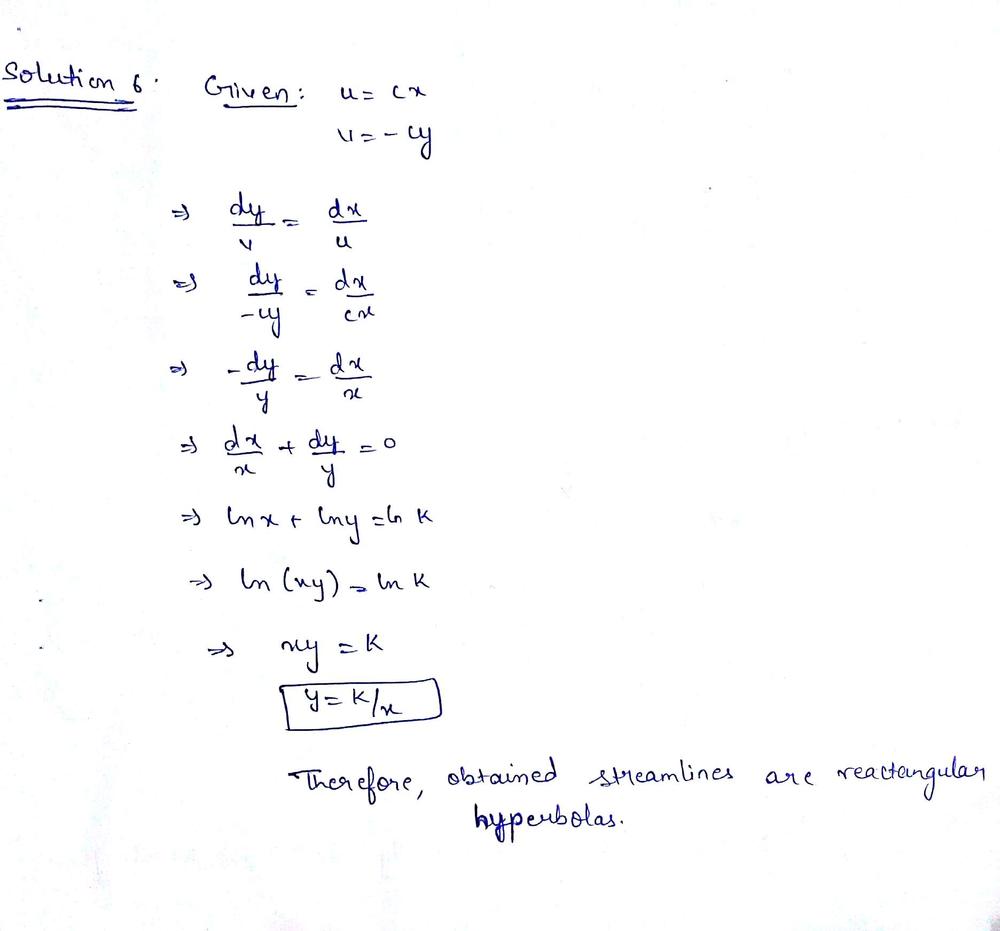 Solution 6: Given: u = cx
v = - cy
⇒ dy/v = dx/u
⇒ dy/-cy = dx/cx
⇒ -dy/y = dx/x
⇒ dx/x + dy/y = 0
⇒ ln x + ln y = ln K
⇒ ln (xy) = ln K
⇒ xy = K
y = K/x
Therefore, obtained streamlines are reactangular
hyperbolas.